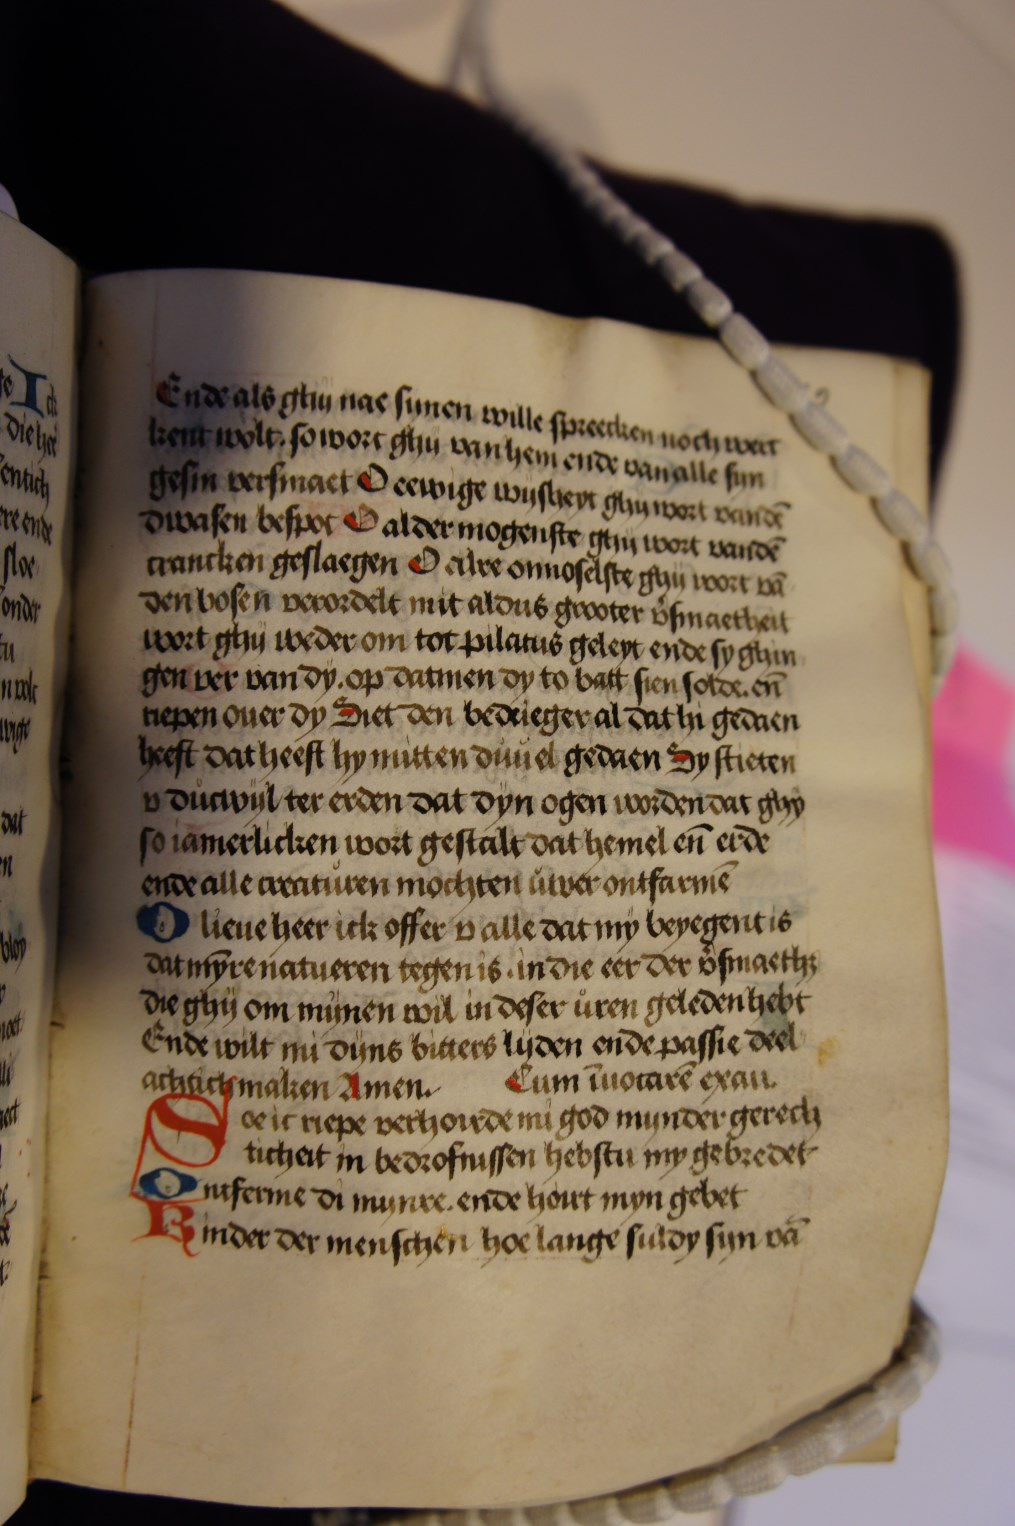 Ende als ghij nae sijnen wille spreecken noch werc
ken wolt. so wort ghij van hem ende van alle sijn
gesin versmaet O eewige wijsheyt ghij wort vandē
dwasen bespot O alder mogenste ghij wort vandē
crancken geslaegen O alre onnoselste ghij wort vā
den bosen verordelt mit aldus grooter v̊smaetheit
wort ghij weder om tot pilatus geleyt ende sy ghin
gen ver van dy. op datmen dy to batt sien solde. en̄
riepen ouer dy Siet den bedrieger al dat hi gedaen
heeft dat heeft hy mitten duuel gedaen Sy stieten
v ducwijl ter erden dat dyn ogen worden dat ghy
so iamerlicken wort gestalt dat hemel en̄ erde
ende alle creaturen mochten uwer ontfarmē
O lieue heer ick offer v alle dat my beyegent is
dat mȳre natueren tegen is. in die eer der v̊smaeth;
die ghij om mijnen wil in deser uren geleden hebt
Ende wilt mi dijns bitters lijden ende passie deel
achtich maken Amen. Cum īuocarē exau.
Soe ic riepe verhoirde mi god mijnder gerech
ticheit in bedrofnissen hebstu my gebredet
Ontferme di mijnre. ende hoirt myn gebet
Kinder der menschen hoe lange suldy sijn vā